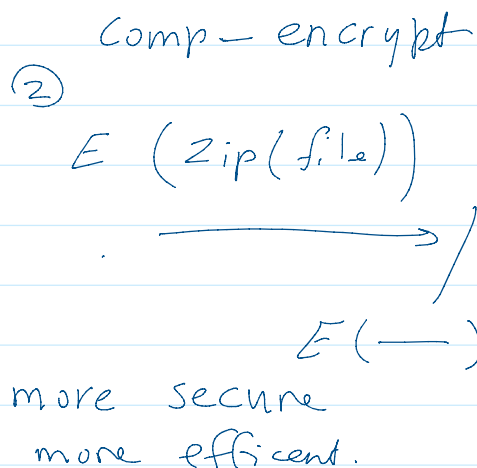 Comp - encrypt
②
E (Zip(file))
E(—)
more secure
more efficent.